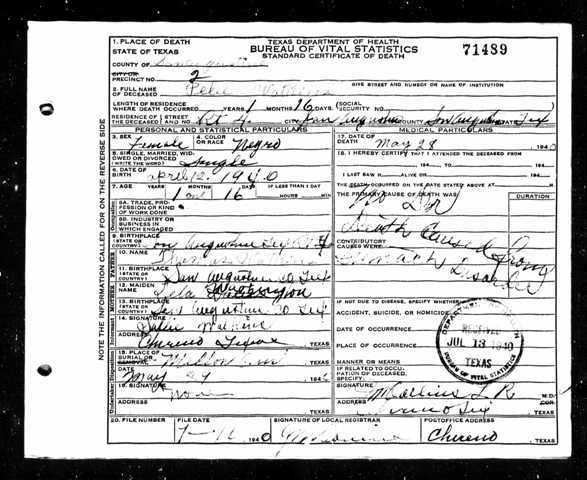 1. PLACE OF DEATH
STATE OF TEXAS
TEXAS DEPARTMENT OF HEALTH
BUREAU OF VITAL STATISTICS
STANDARD CERTIFICATE OF DEATH
71489
COUNTY OF San Augustine
CITY OR
PRECINCT NO. 2
GIVE STREET AND NUMBER OR NAME OF INSTITUTION
2. FULL NAME
OF DECEASED
LENGTH OF RESIDENCE
WHERE DEATH OCCURRED YEARS 1 MONTHS 16 DAYS (SOCIAL SECURITY NO.
RESIDENCE OF THE DECEASED STREET Rt 4 CITY San Augustine COUNTY San Augustine STATE Tex
PERSONAL AND STATISTICAL PARTICULARS
MEDICAL PARTICULARS
3. SEX Female
4. COLOR
OR RACE Negro
17. DATE OF
DEATH May 28 1940
5. SINGLE, MARRIED, WID-
OWED OR DIVORCED
(WRITE THE WORD) Single
18. I HEREBY CERTIFY THAT I ATTENDED THE DECEASED FROM
194 TO 194
6. DATE OF
BIRTH April 12, 1940
I LAST SAW H ALIVE ON 194
THE DATE STATED ABOVE AT M.
7. AGE YEARS 1 MONTHS 16 DAYS IF LESS THAN 1 DAY
HOURS MIN.
THE PRIMARY CAUSE OF DEATH WAS: No Dr
DURATION
8A. TRADE, PRO-
FESSION OR KIND
OF WORK DONE
Death Caused From
8B. INDUSTRY OR
BUSINESS IN
WHICH ENGAGED
CONTRIBUTORY
CAUSES WERE Stomach Disorder
9. BIRTHPLACE
(STATE OR
COUNTRY) San Augustine Tex Rt 4
10. NAME
11. BIRTHPLACE
(STATE OR
COUNTRY) San Augustine Co Tex
12. MAIDEN
NAME
13. BIRTHPLACE
(STATE OR
COUNTRY) San Augustine Co Tex
14. SIGNATURE
ADDRESS Chireno Texas
IF NOT DUE TO DISEASE, SPECIFY:
ACCIDENT, SUICIDE, OR HOMICIDE
DATE OF OCCURRENCE
PLACE OF OCCURRENCE
MANNER OR MEANS
IF RELATED TO OCCU-
PATION OF DECEASED,
SPECIFY.
RECEIVED
JUL 13 1940
TEXAS
BUREAU OF VITAL STATISTICS
15. PLACE OF
BURIAL OR
REMOVAL
DATE May 29 194
16. SIGNATURE None
ADDRESS
SIGNATURE M.D.
ADDRESS Chireno Tex
20. FILE NUMBER
FILE DATE 1940
SIGNATURE OF LOCAL REGISTRAR
POSTOFFICE ADDRESS
Chireno TEXAS
NOTE THE INFORMATION CALLED FOR ON THE REVERSE SIDE